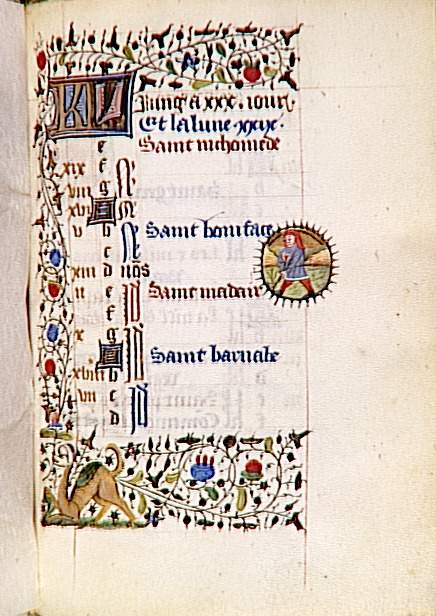 KL Juing a xxx. iours.
Et la lune .xxix.
e Saint nichomede
xix f
viii g
xvi A
v b Saint boniface
c
xiii d nos
ii e Saint madair
f
x g
A Saint barnabe
xviii b
vii c
d